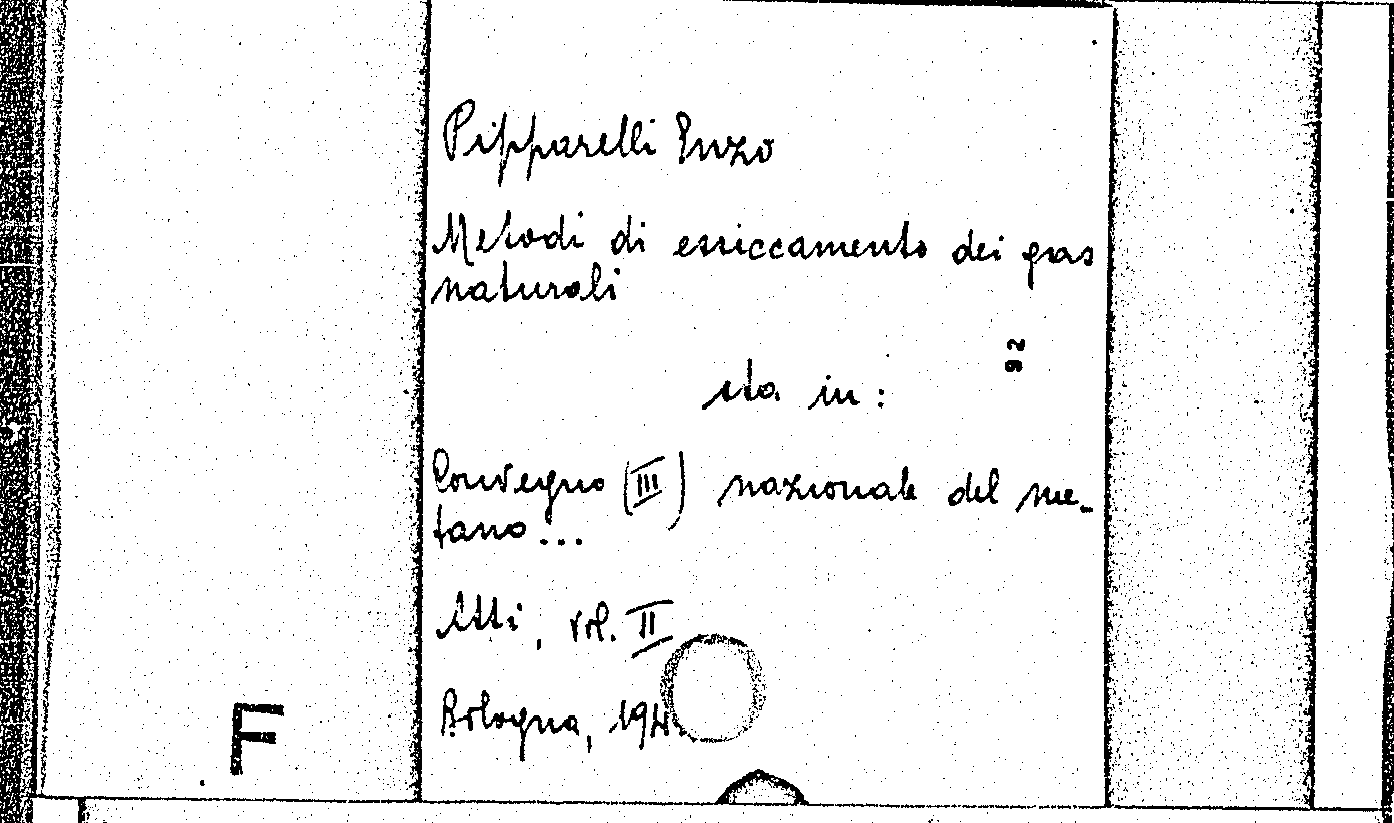 Pipparelli Enzo
Metodi di essiccamento dei gas
naturali
92
sta in:
Convegno (III) nazionale del me-
tano...
Atti, vol. II
Bologna,
F